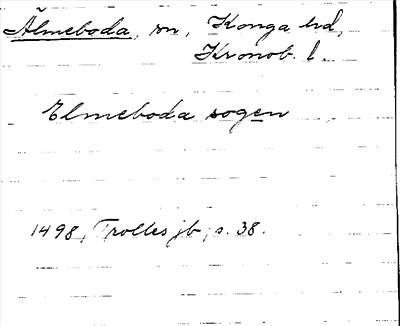 Älmeboda, sn, Konga hd,
Kronob. l.
Elmeboda sogen
1498, Trolles jb, s. 38.